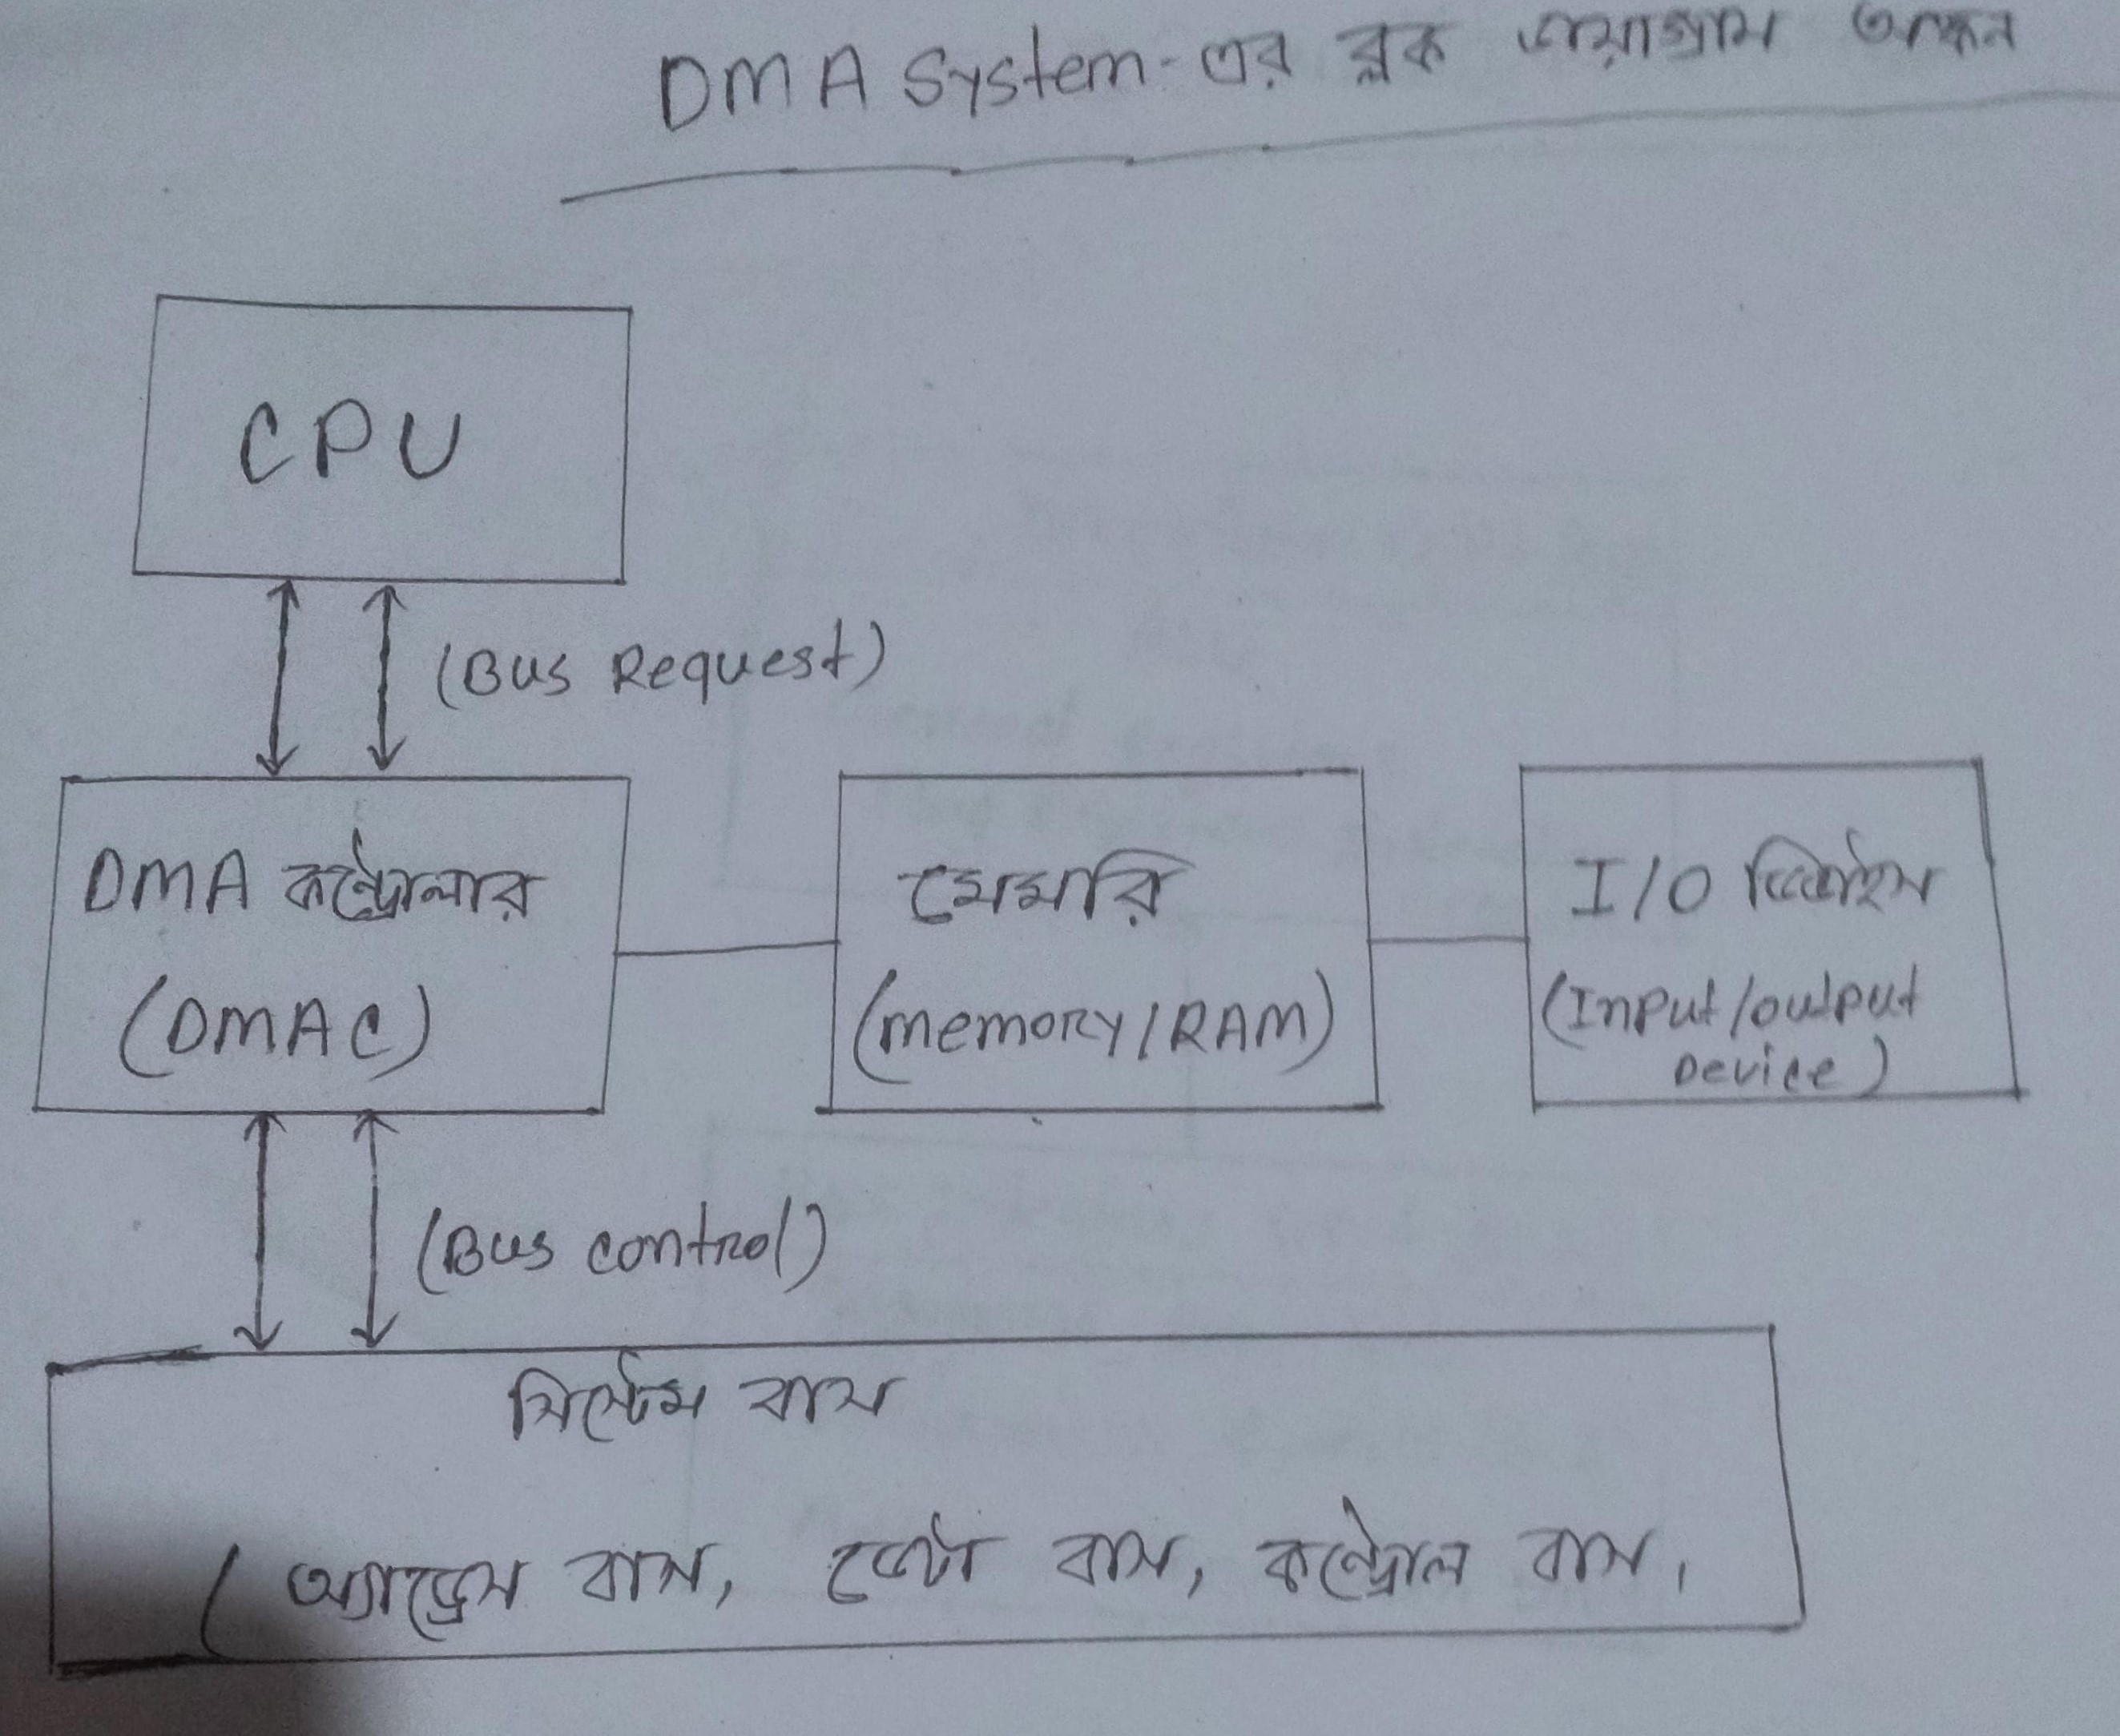 DMA System-এর ব্লক ডায়াগ্রাম অঙ্কন
CPU
(Bus Request)
DMA কন্ট্রোলার
(DMAC)
মেমরি
(memory/RAM)
I/O ডিভাইস
(Input/output
Device)
(Bus control)
সিস্টেম বাস
(অ্যাড্রেস বাস, ডেটা বাস, কন্ট্রোল বাস,